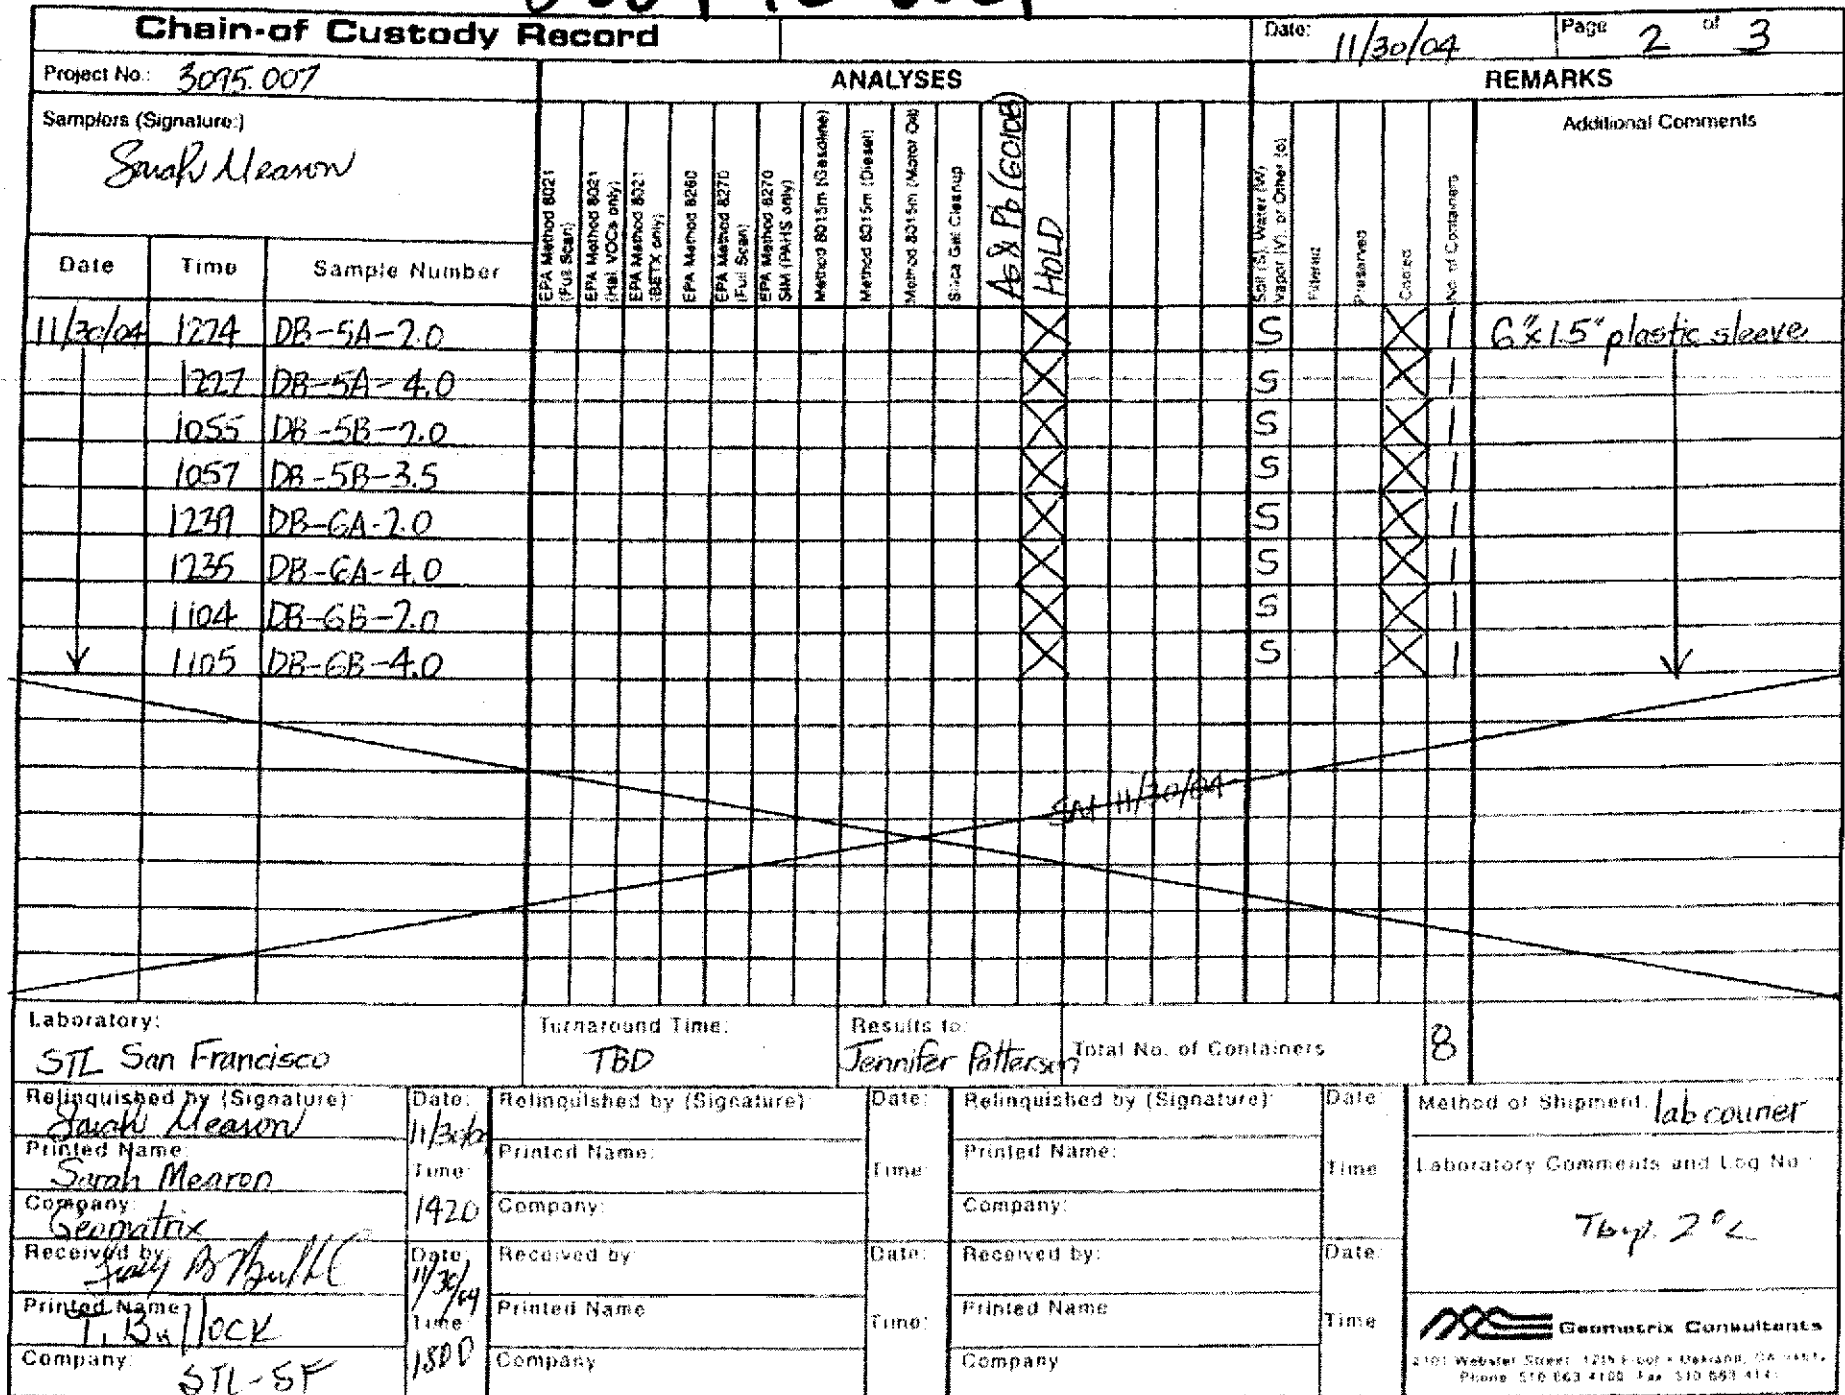 Chain-of Custody Record
Date: 11/30/04
Page 2 of 3
Project No.: 3095.007
ANALYSES
REMARKS
Samplers (Signature:)
Sarah Mearon
EPA Method 8021 (Full Scan)
EPA Method 8021 (Hal. VOCs only)
EPA Method 8021 (BETX only)
EPA Method 8260
EPA Method 8270 (Full Scan)
EPA Method 8270 SIM (PAHS only)
Method 8015m (Gasoline)
Method 8015m (Diesel)
Method 8015m (Motor Oil)
Silica Gel Cleanup
(6010B)
HOLD
Soil (S), Water (W), Vapor (V), or Other (o)
Filtered
Preserved
Cooled
No. of Containers
Additional Comments
Date Time Sample Number
11/30/04 1224 DB-5A-2.0 X S X 1 6"x1.5" plastic sleeve
1227 DB-5A-4.0 X S X 1
1055 DB-5B-2.0 X S X 1
1057 DB-5B-3.5 X S X 1
1239 DB-6A-2.0 X S X 1
1235 DB-6A-4.0 X S X 1
1104 DB-6B-2.0 X S X 1
1105 DB-6B-4.0 X S X 1
SM 11/30/04
Laboratory:
STL San Francisco
Turnaround Time:
TBD
Results to:
Jennifer Patterson
Total No. of Containers
8
Relinquished by (Signature)
Sarah Mearon
Date: 11/30/04
Printed Name:
Sarah Mearon
Time: 1420
Company:
Geomatrix
Received by:
Date: 11/30/04
Printed Name:
T. Bullock
Time 1800
Company:
STL-SF
Relinquished by (Signature)
Date:
Printed Name:
Time
Company:
Received by
Date:
Printed Name
Time:
Company
Relinquished by (Signature)
Date
Printed Name:
Time
Company:
Received by:
Date:
Printed Name
Time
Company
Method of Shipment: lab courier
Laboratory Comments and Log No.:
2°C
Geomatrix Consultants
2101 Webster Street, 12th Floor • Oakland, CA
Phone 510 663 4100 Fax 510 663